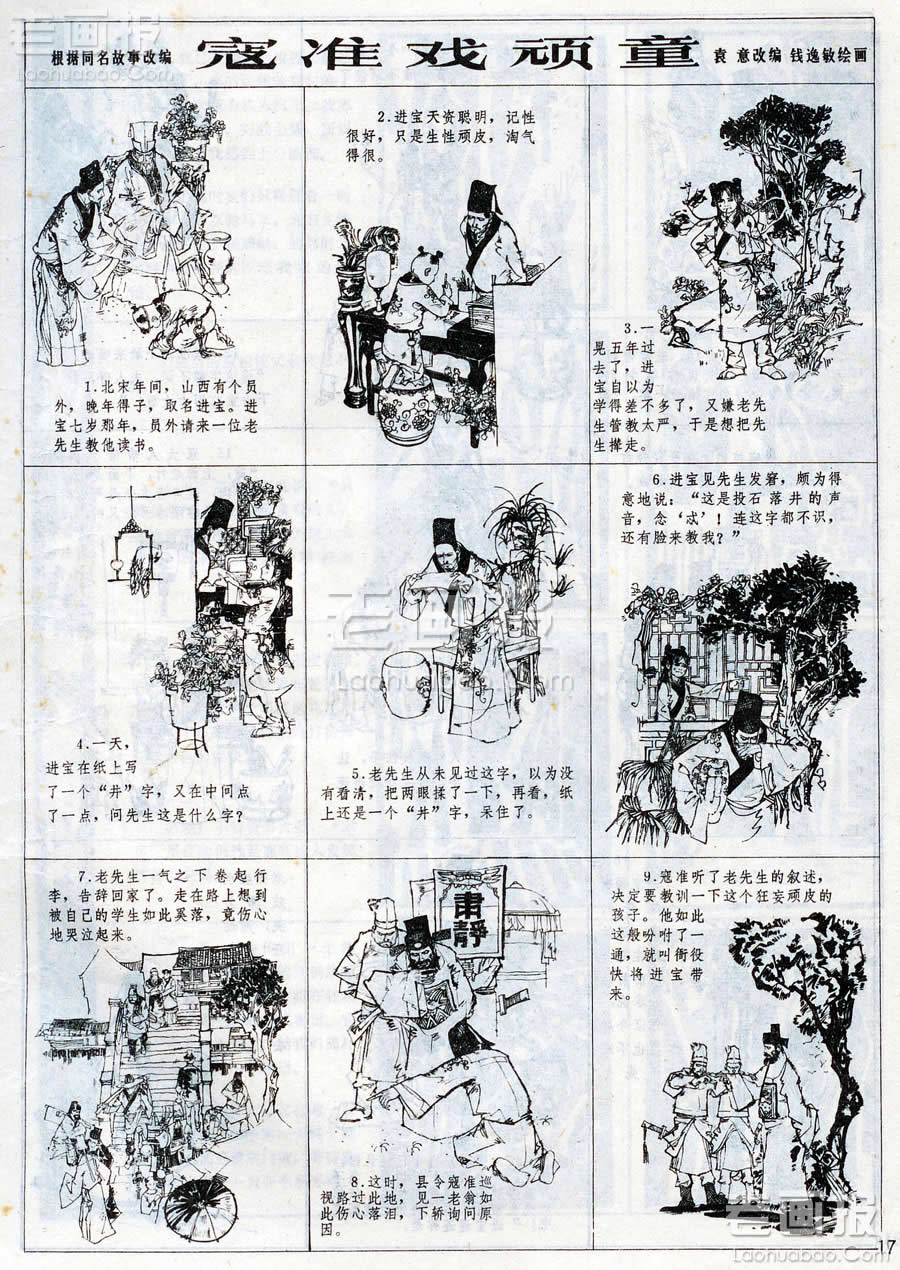 老画报
Laohuabao.Com
根据同名故事改编
寇准戏顽童
袁 意改编 钱逸敏绘画
1.北宋年间，山西有个员
外，晚年得子，取名进宝。进
宝七岁那年，员外请来一位老
先生教他读书。
2.进宝天资聪明，记性
很好，只是生性顽皮，淘气
得很。
3.一
晃五年过
去了，进
宝自以为
学得差不多了，又嫌老先
生管教太严，于是想把先
生撵走。
4.一天，
进宝在纸上写
了一个“井”字，又在中间点
了一点，问先生这是什么字？
5.老先生从未见过这字，以为没
有看清，把两眼揉了一下，再看，纸
上还是一个“丼”字，呆住了。
6.进宝见先生发窘，颇为得
意地说：“这是投石落井的声
音，念‘忒’！连这字都不识，
还有脸来教我？”
老画报
Laohuabao.Com
7.老先生一气之下卷起行
李，告辞回家了。走在路上想到
被自己的学生如此奚落，竟伤心
地哭泣起来。
肃静
8.这时，县令寇准巡
视路过此地，见一老翁如
此伤心落泪，下轿询问原
因。
9.寇准听了老先生的叙述，
决定要教训一下这个狂妄顽皮的
孩子。他如此
这般吩咐了一
通，就叫衙役
快将进宝带
来。
老画报
Laohuabao.Com
17